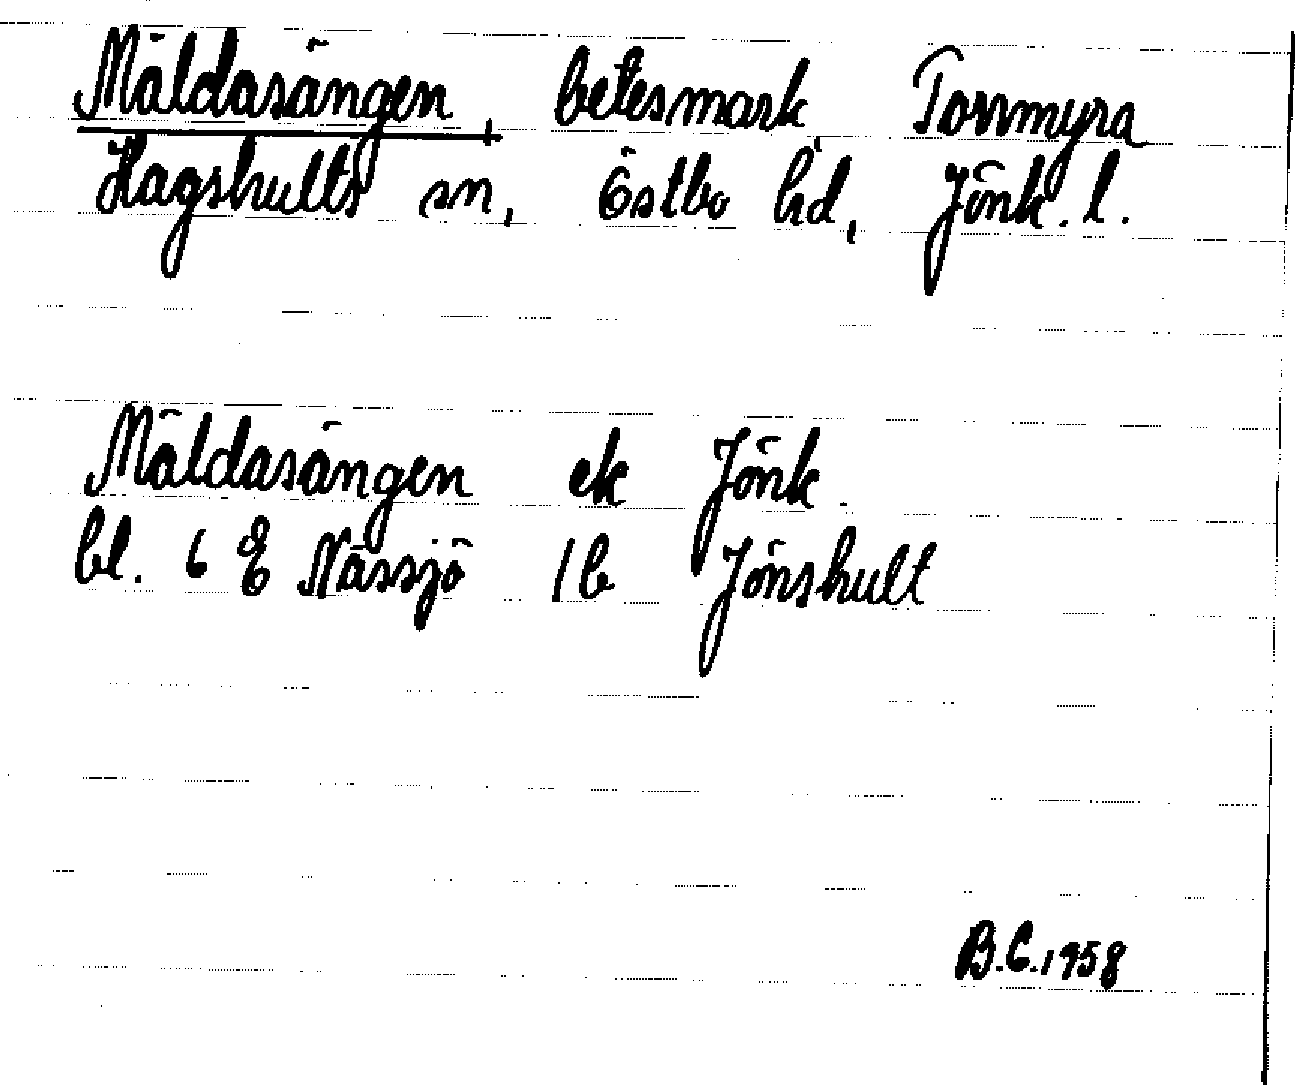 Mäldasängen, betesmark, Torrmyra
Hagshults sn, Östbo hd, Jönk. l.
Mäldasängen ek Jönk.
bl. 6 E Nässjö 1b Jönshult
B.C. 1958